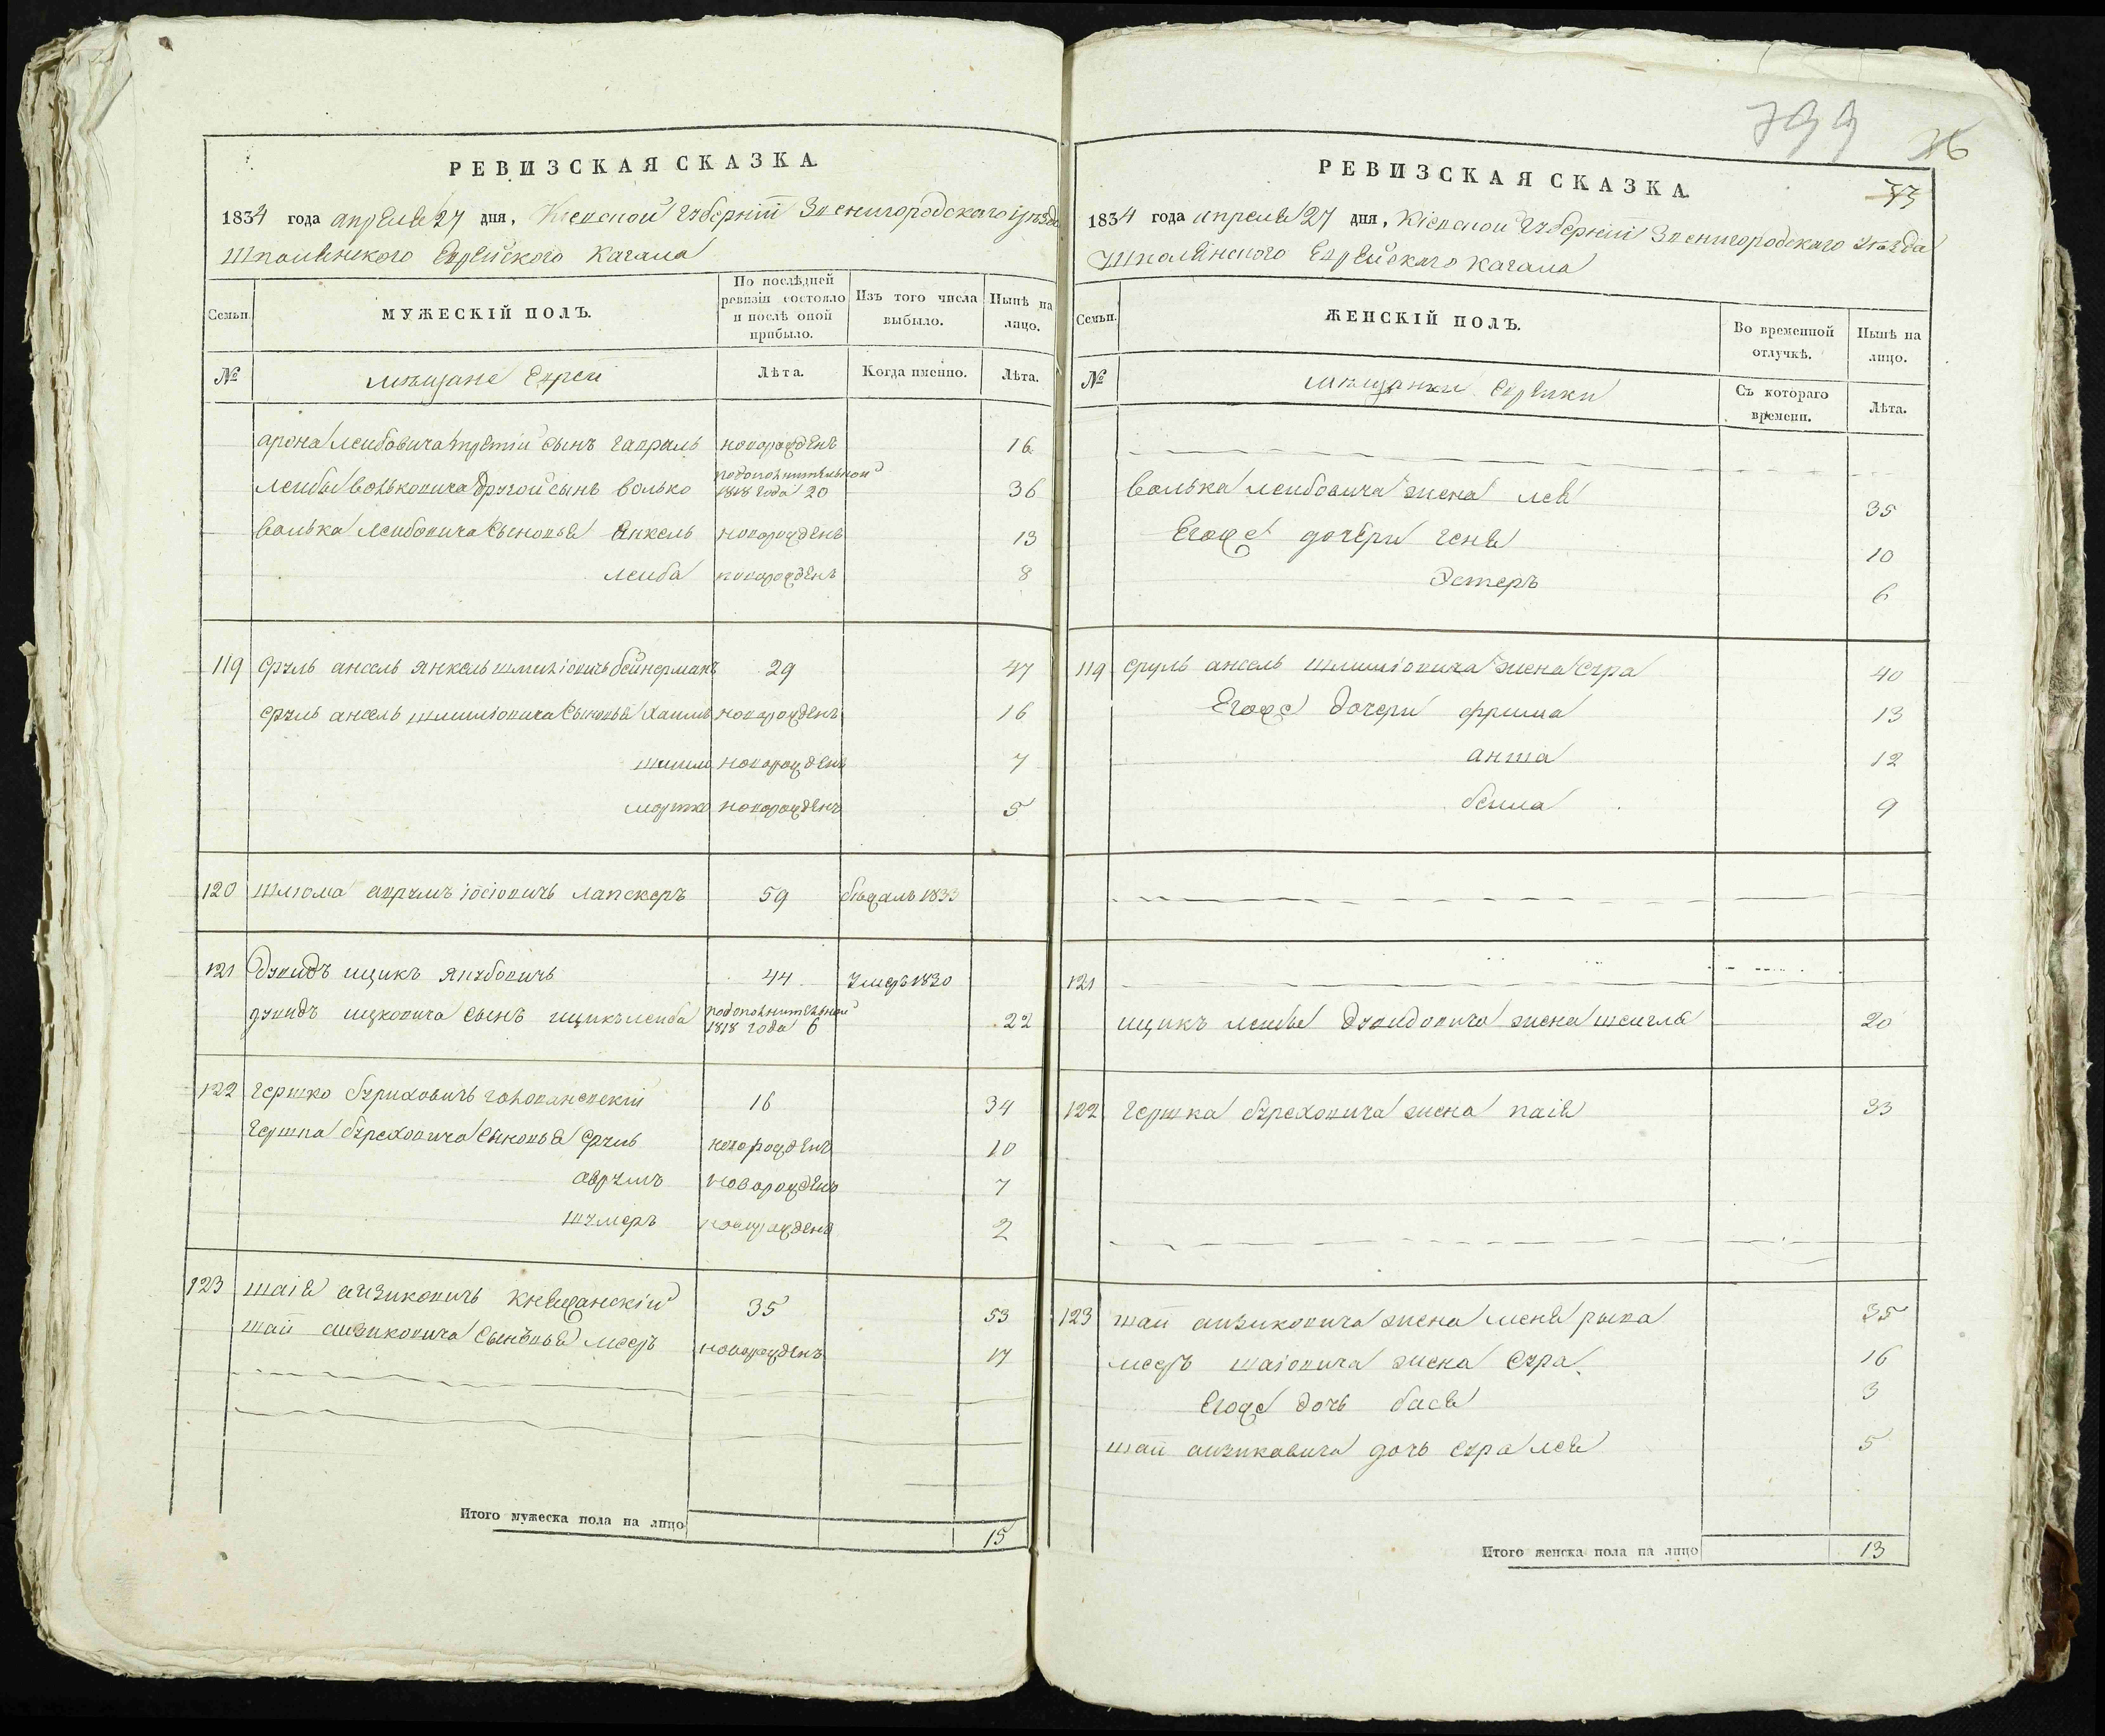 РЕВИЗСКАЯ СКАЗКА.
1834 года апреля 27 дня, Кіевской Губерніи Звенигородскаго уѣзда
Шполянского Еврейского Кагала
Семьи.
МУЖЕСКІЙ ПОЛЪ.
По послѣдней ревизіи состояло и послѣ оной прибыло.
Изъ того числа выбыло.
Нынѣ на лицо.
№
мѣщане Евреи
Лѣта.
Когда именно.
Лѣта.
арона Лейбовича третій сынъ гавриль новорожденъ 16
Лейбы Вольковича другой сынъ волько подополнительной 1818 года 20 36
Волька Лейбовича сыновья Янкель новорожденъ 13
лейба новорожденъ 8
119 сруль ансель Янкель шмиліовичь бейнерманъ 29 47
сруль ансель шмиліовича сыновья хаимъ новорожденъ 16
шмиль новорожденъ 7
мортко новорожденъ 5
120 шлюма аврумъ іосіовичь лапскеръ 59 бѣжалъ 1833
121 дувидъ ицикъ янубовичь 44 умеръ 1830
дувидъ ицковича сынъ ицикълейба подополнительной 1818 года 6 22
122 гершко буриховичь 16 34
гершка буреховича сыновья сруль новорожденъ 10
аврумъ новорожденъ 7
шумеръ новорожденъ 2
123 шаія аизиковичь княжанскій 35 53
шаи аизиковича сыновья мееръ новорожденъ 17
Итого мужеска пола на лицо 15
799 26
73
РЕВИЗСКАЯ СКАЗКА.
1834 года апреля 27 дня, Кіевской Губерніи Звенигородскаго уѣзда
Шполянского Еврейскаго кагала
Семьи.
ЖЕНСКІЙ ПОЛЪ.
Во временной отлучкѣ.
Нынѣ на лицо.
№
мѣщанки еврейки
Съ котораго времени.
Лѣта.
Волька лейбовича жена лея 35
Егоже дочери геня 10
Эстеръ 6
119 сруль ансель шмиліовича жена сура 40
Егоже дочери фрима 13
анта 12
бейла 9
121
ицикъ лейбы дувидовича жена шейгля 20
122 гершка буреховича жена паія 33
123 шаи аизиковича жена меня рыва 35
мееръ шаіовича жена сура 16
Егоже дочь бася 3
шаи аизикавича дочь сура лея 5
Итого женска пола на лицо 13